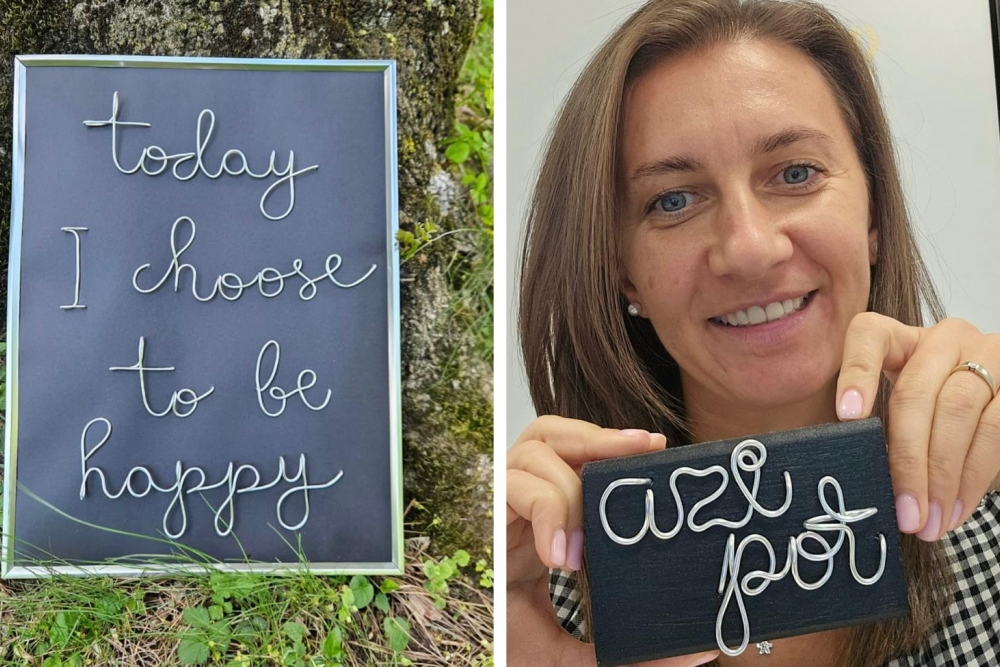 today
I choose
to be
happy
azi
pot